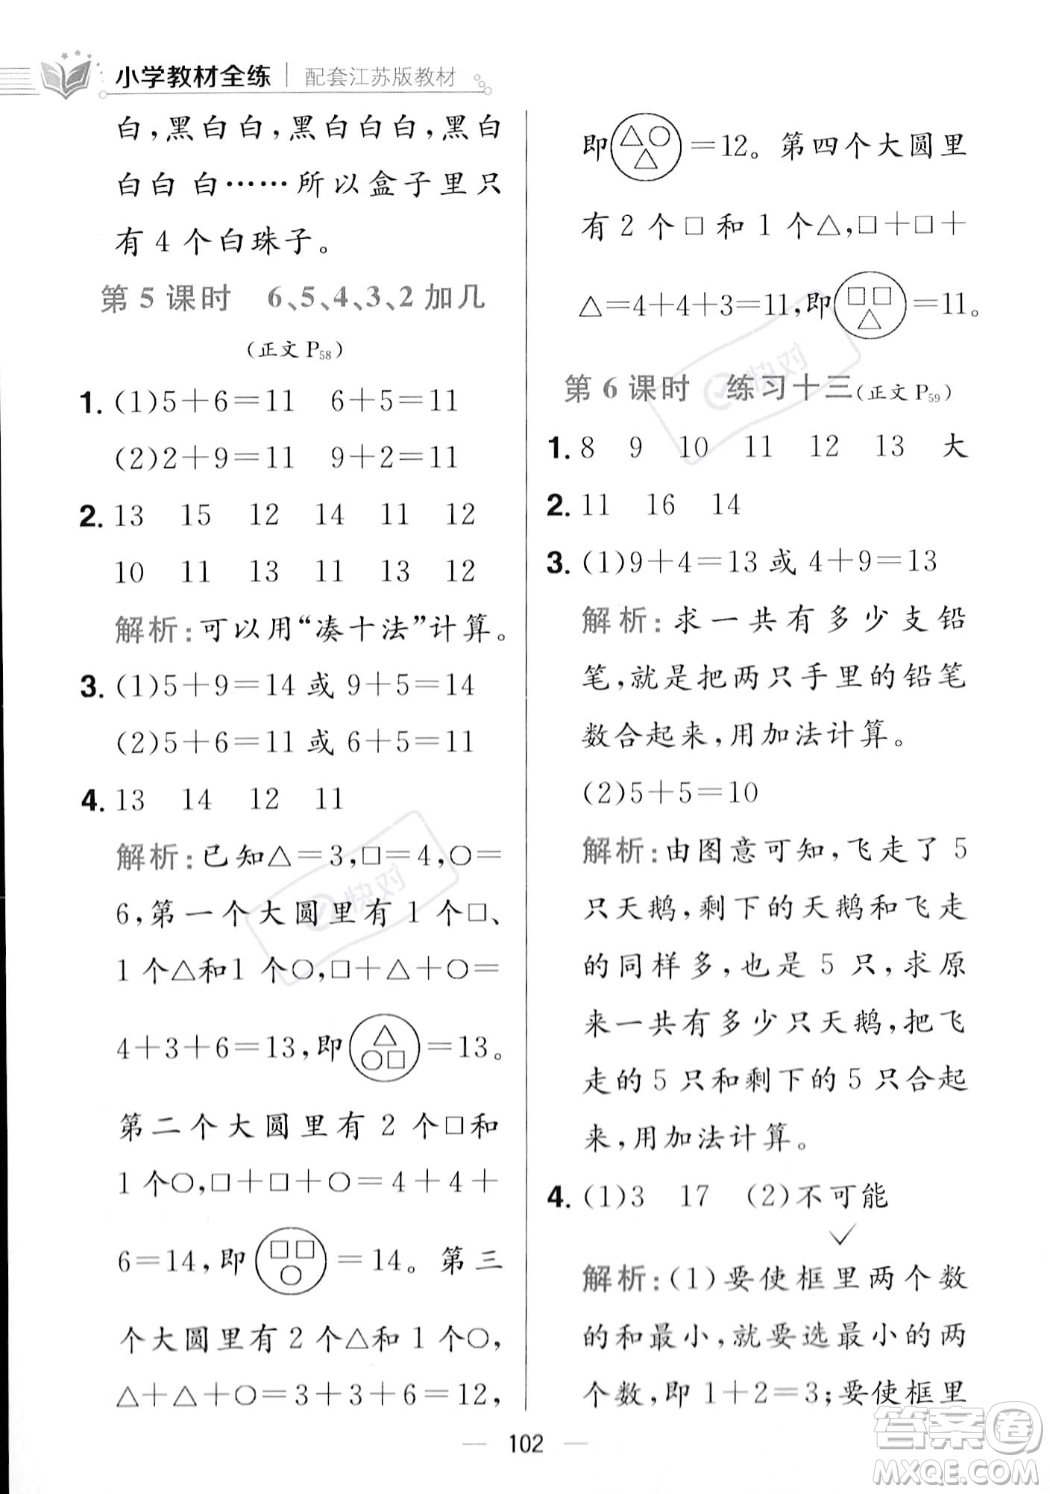 小学教材全练 配套江苏版教材
白,黑白白,黑白白白,黑白
白白 白……所以盒子里只
有 4 个白珠子。
第 5 课时 6、5、4、3、2 加几
(正文 P58)
1. (1)5+6=11 6+5=11
(2)2+9=11 9+2=11
2. 13 15 12 14 11 12
10 11 13 11 13 12
解析:可以用“凑十法”计算。
3. (1)5+9=14 或 9+5=14
(2)5+6=11 或 6+5=11
4. 13 14 12 11
解析:已知△=3,□=4,○=
6,第一个大圆里有 1 个□、
1 个△和1 个○,□+△+○=
4+3+6=13,即(△○□)=13。
第二个大圆里有 2 个□和
1 个○,□+□+○=4+4+
6=14,即(□□○)=14。第三
个大圆里有 2 个△和 1 个○,
△+△+○=3+3+6=12,
即(△○△)=12。第四个大圆里
有 2 个□和 1 个△,□+□+
△=4+4+3=11,即(□□△)=11。
第 6 课时 练习十三(正文 P59)
1. 8 9 10 11 12 13 大
2. 11 16 14
3. (1)9+4=13 或 4+9=13
解析:求一共有多少支铅
笔,就是把两只手里的铅笔
数合起来,用加法计算。
(2)5+5=10
解析:由图意可知,飞走了 5
只天鹅,剩下的天鹅和飞走
的同样多,也是 5 只,求原
来一共有多少只天鹅,把飞
走的 5 只和剩下的 5 只合起
来,用加法计算。
4. (1)3 17 (2)不可能
✓
解析:(1)要使框里两个数
的和最小,就要选最小的两
个数,即 1+2=3;要使框里
102
快对
快对
答案卷
MXQE.COM